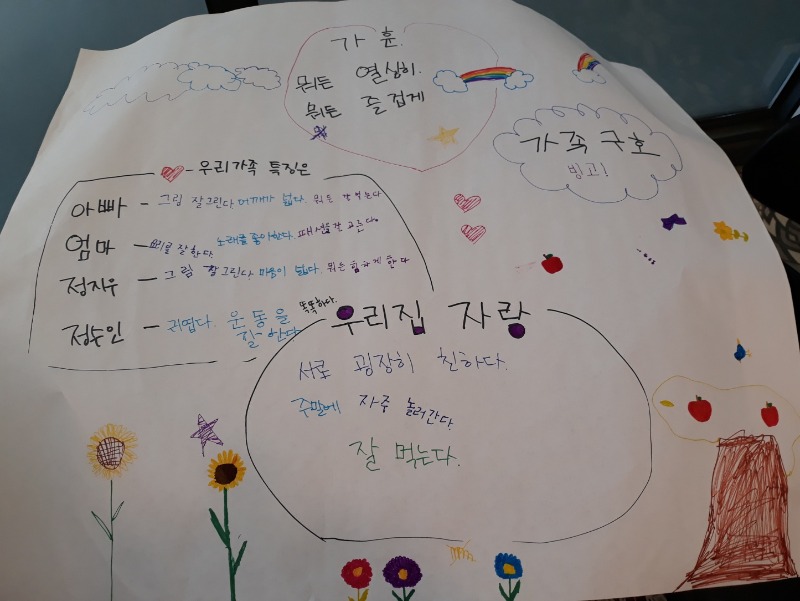 가 훈.
뭐든 열심히.
뭐든 즐겁게
가족 구호
빙고!
우리가족 특징은
아빠 - 그림 잘그린다 어깨가 넓다. 뭐든 잘 먹는다
엄마 - 잘한다. 노래를 좋아한다. 고른다.
정지우 - 그림 잘 그린다 마음이 넓다. 뭐든 한다
정수인 - 귀엽다. 운동을 잘 한다 똑똑하다.
우리집 자랑
서로 굉장히 친하다.
주말에 자주 놀러간다.
잘 먹는다.